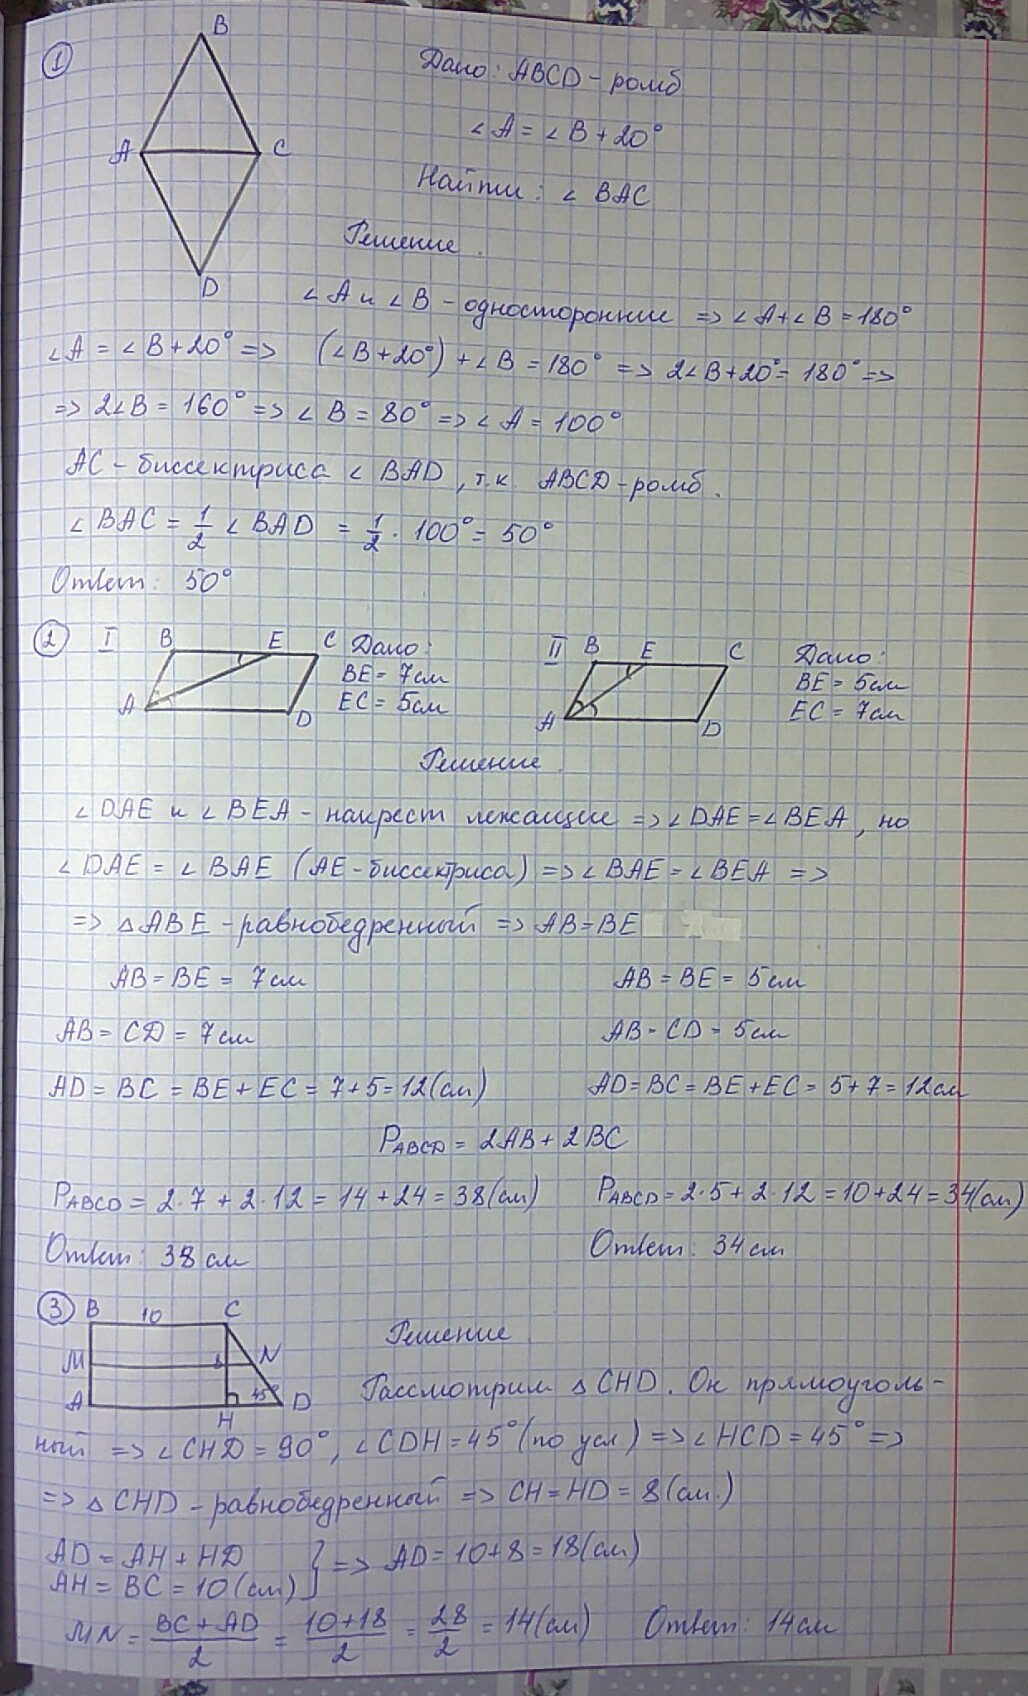 1
B
A
C
D
Дано: ABCD - ромб
∠A = ∠B + 20°
Найти: ∠BAC
Решение.
∠A и ∠B - односторонние => ∠A + ∠B = 180°
∠A = ∠B + 20° => (∠B + 20°) + ∠B = 180° => 2∠B + 20° = 180° =>
=> 2∠B = 160° => ∠B = 80° => ∠A = 100°
AC - биссектриса ∠BAD, т.к. ABCD - ромб.
∠BAC = 1/2 ∠BAD = 1/2 · 100° = 50°
Ответ: 50°
2 I B E C A D
Дано:
BE = 7см
EC = 5см
II B E C A D
Дано:
BE = 5см
EC = 7см
Решение.
∠DAE и ∠BEA - накрест лежащие => ∠DAE = ∠BEA, но
∠DAE = ∠BAE (AE - биссектриса) => ∠BAE = ∠BEA =>
=> △ABE - равнобедренный => AB = BE
AB = BE = 7см AB = BE = 5см
AB = CD = 7см AB - CD = 5см
AD = BC = BE + EC = 7 + 5 = 12(см) AD = BC = BE + EC = 5 + 7 = 12см
PABCD = 2AB + 2BC
PABCD = 2·7 + 2·12 = 14 + 24 = 38(см) PABCD = 2·5 + 2·12 = 10 + 24 = 34(см)
Ответ: 38см Ответ: 34см
3 B 10 C
M 8 N
A H 45° D
Решение.
Рассмотрим △CHD. Он прямоуголь-
ный => ∠CHD = 90°, ∠CDH = 45° (по усл) => ∠HCD = 45° =>
=> △CHD - равнобедренный => CH = HD = 8(см.)
AD = AH + HD
AH = BC = 10(см) } => AD = 10 + 8 = 18(см)
MN = (BC + AD)/2 = (10 + 18)/2 = 28/2 = 14(см) Ответ: 14см